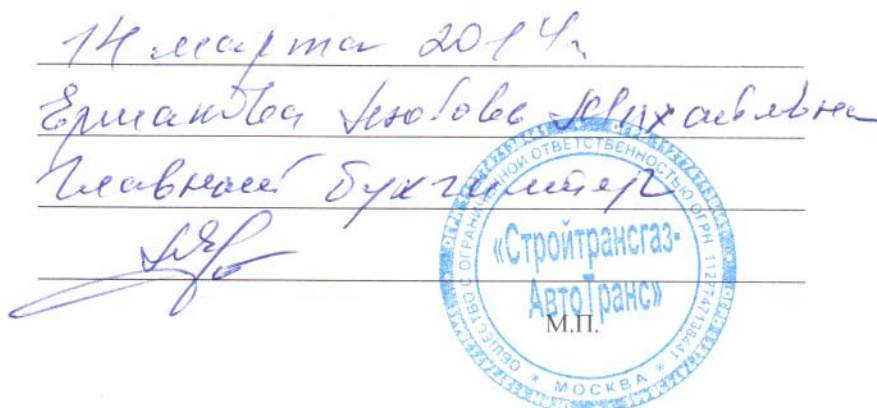 14 марта 2014г
Ермакова Любовь Михайловна
Главный бухгалтер
ОБЩЕСТВО С ОГРАНИЧЕННОЙ ОТВЕТСТВЕННОСТЬЮ ОГРН 1127747138441
«Стройтрансгаз-
АвтоТранс»
М.П.
* МОСКВА *